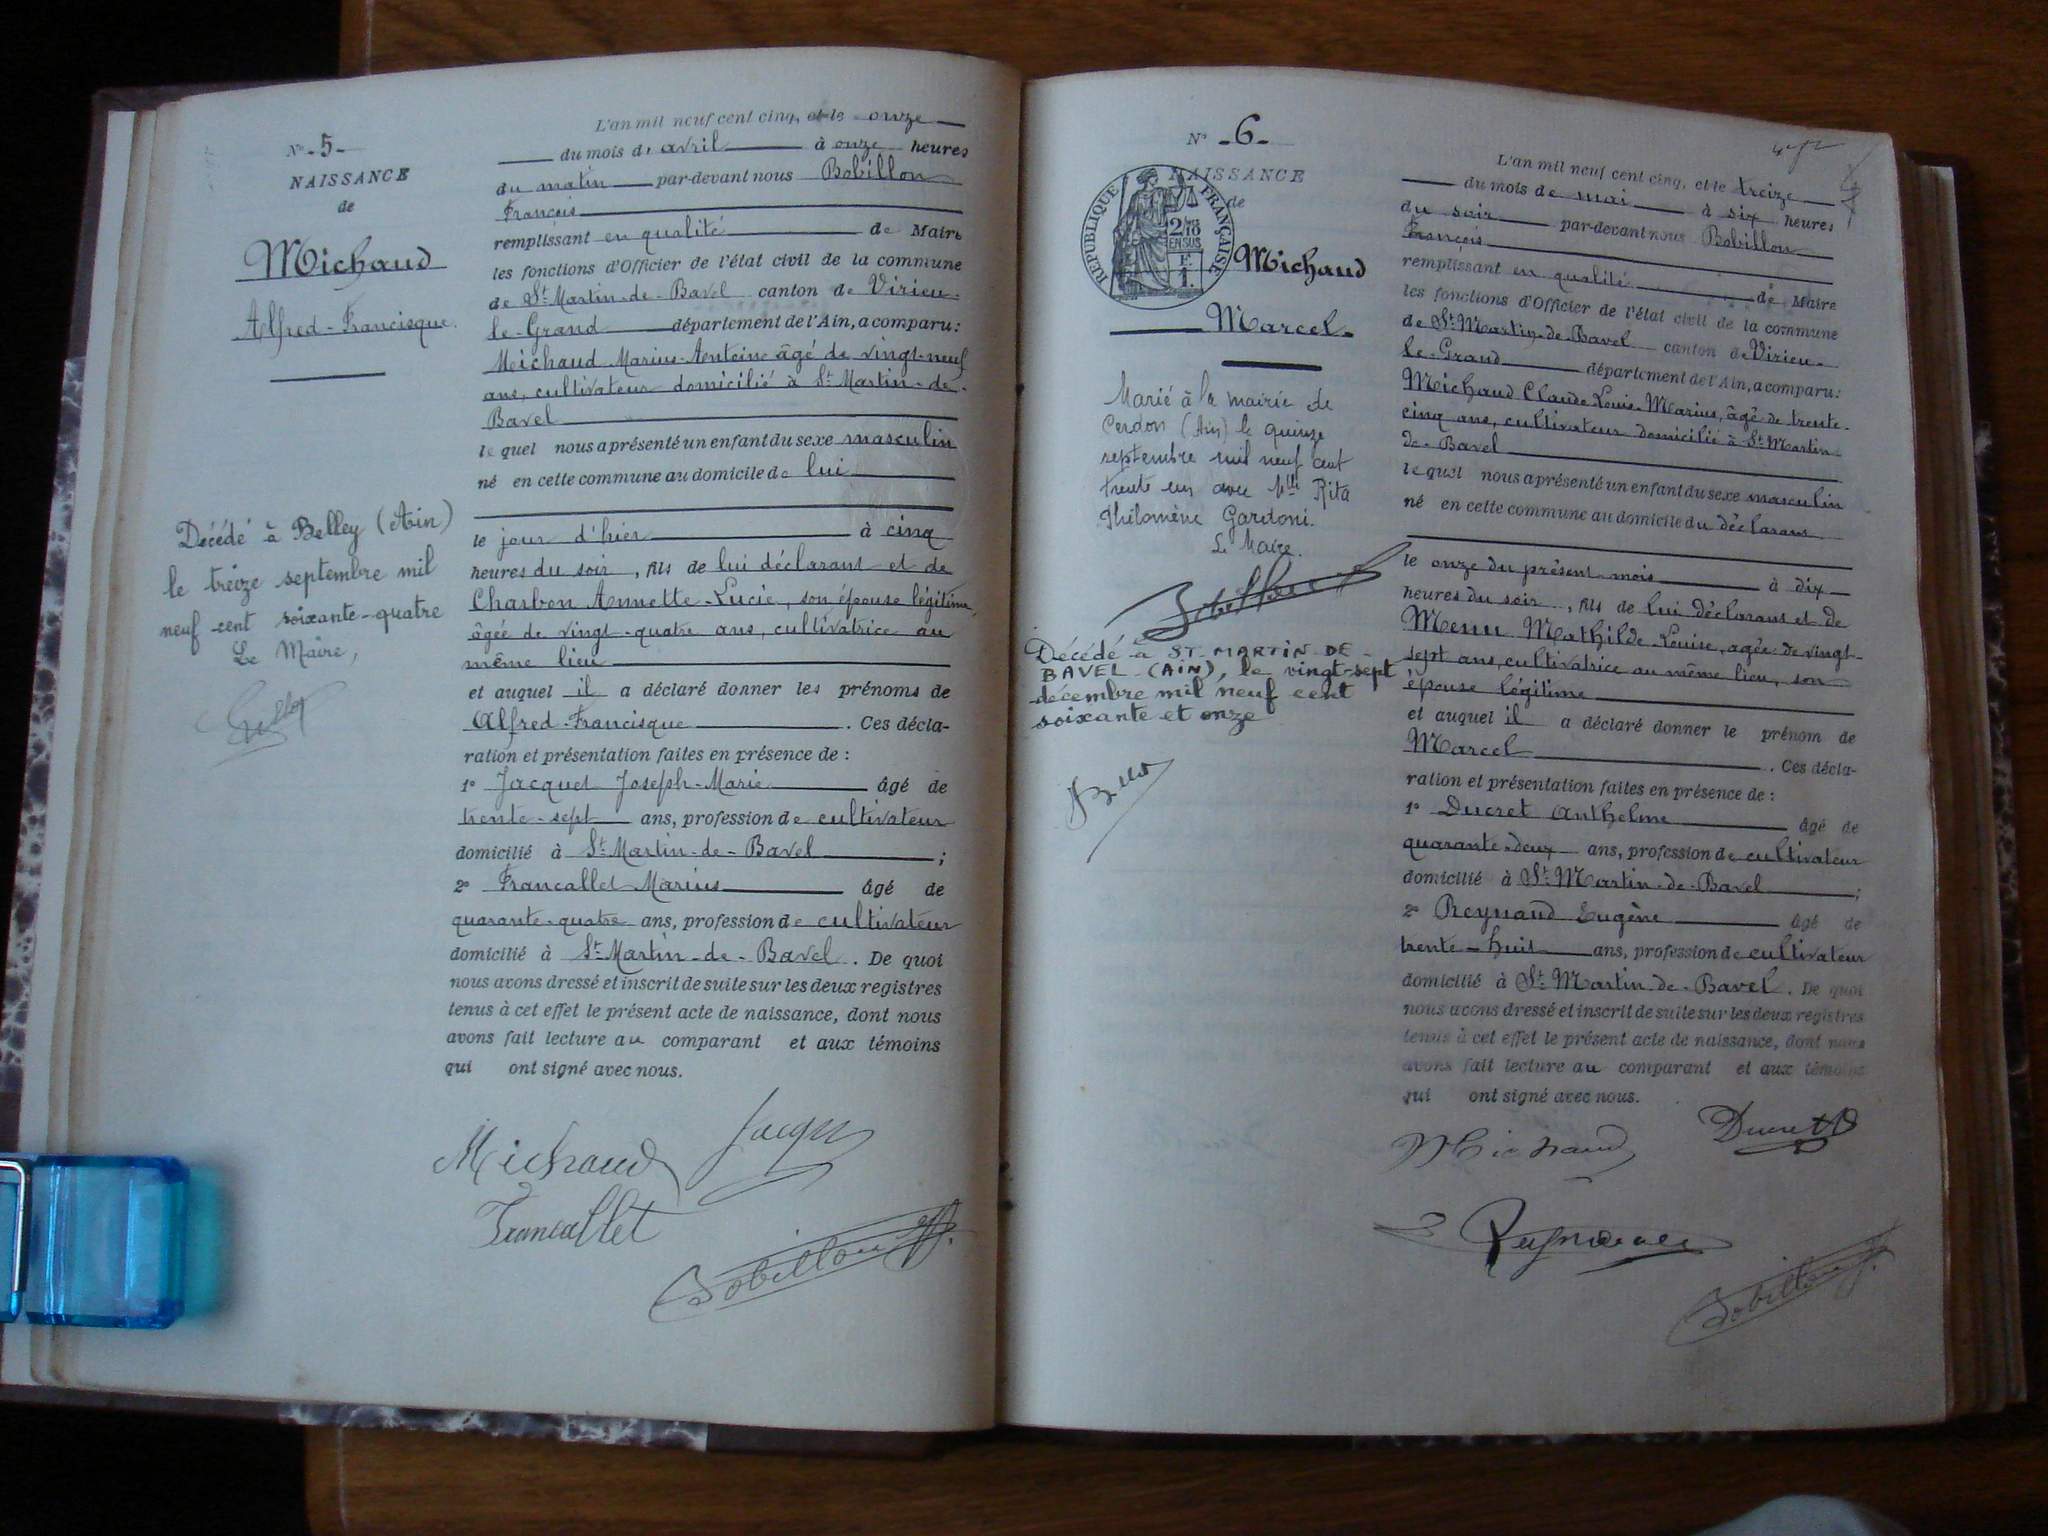 N° -5-
NAISSANCE
de
Michaud
Alfred-Francisque.
Décédé à Belley (Ain)
le treize septembre mil
neuf-cent soixante-quatre
Le Maire,
L'an mil neuf cent cinq, et le onze
du mois d avril à onze heures
du matin par-devant nous Bobillon
François
remplissant en qualité de Maire
les fonctions d'Officier de l'état civil de la commune
de St Martin-de-Bavel canton de Virieu-
le-Grand département de l'Ain, a comparu:
Michaud Marius-Antoine âgé de vingt-neuf
ans, cultivateur domicilié à St Martin-de-
Bavel
le quel nous a présenté un enfant du sexe masculin
né en cette commune au domicile de lui
le jour d'hier à cinq
heures du soir, fils de lui déclarant et de
Charbon Annette-Lucie, son épouse légitime,
âgée de vingt-quatre ans, cultivatrice au
même lieu
et auquel il a déclaré donner les prénoms de
Alfred-Francisque. Ces décla-
ration et présentation faites en présence de :
1° Jacquet Joseph-Marie âgé de
trente-sept ans, profession de cultivateur
domicilié à St Martin-de-Bavel ;
2° Francallet Marius âgé de
quarante-quatre ans, profession de cultivateur
domicilié à St Martin-de-Bavel. De quoi
nous avons dressé et inscrit de suite sur les deux registres
tenus à cet effet le présent acte de naissance, dont nous
avons fait lecture au comparant et aux témoins
qui ont signé avec nous.
Michaud
Francallet
Bobillon
N° -6-
NAISSANCE
de
REPUBLIQUE FRANÇAISE
2/10
EN SUS
F
1.
Michaud
Marcel.
Marié à la mairie de
Cerdon (Ain) le quinze
septembre mil neuf cent
trente un avec Mlle Rita
Philomène Gardoni.
Le Maire.
Décédé à ST-MARTIN-DE-
BAVEL (AIN), le vingt-sept
décembre mil neuf cent
soixante et onze
L'an mil neuf cent cinq, et le treize
du mois de mai à six heures
du soir par-devant nous Bobillon
François
remplissant en qualité de Maire
les fonctions d'Officier de l'état civil de la commune
de St Martin-de-Bavel canton de Virieu-
le-Grand département de l'Ain, a comparu:
Michaud Claude-Louis-Marius, âgé de trente-
cinq ans, cultivateur domicilié à St Martin-
de-Bavel
le quel nous a présenté un enfant du sexe masculin
né en cette commune au domicile du déclarant
le onze du présent mois à dix
heures du soir, fils de lui déclarant et de
Menu Mathilde-Louise, âgée de vingt-
sept ans, cultivatrice au même lieu, son
épouse légitime
et auquel il a déclaré donner le prénom de
Marcel. Ces décla-
ration et présentation faites en présence de :
1° Ducret Anthelme âgé de
quarante-deux ans, profession de cultivateur
domicilié à St Martin-de-Bavel ;
2° Reynaud Eugène âgé de
trente-huit ans, profession de cultivateur
domicilié à St Martin-de-Bavel. De quoi
nous avons dressé et inscrit de suite sur les deux registres
tenus à cet effet le présent acte de naissance, dont nous
avons fait lecture au comparant et aux témoins
qui ont signé avec nous.
Michaud
Ducret
Bobillon